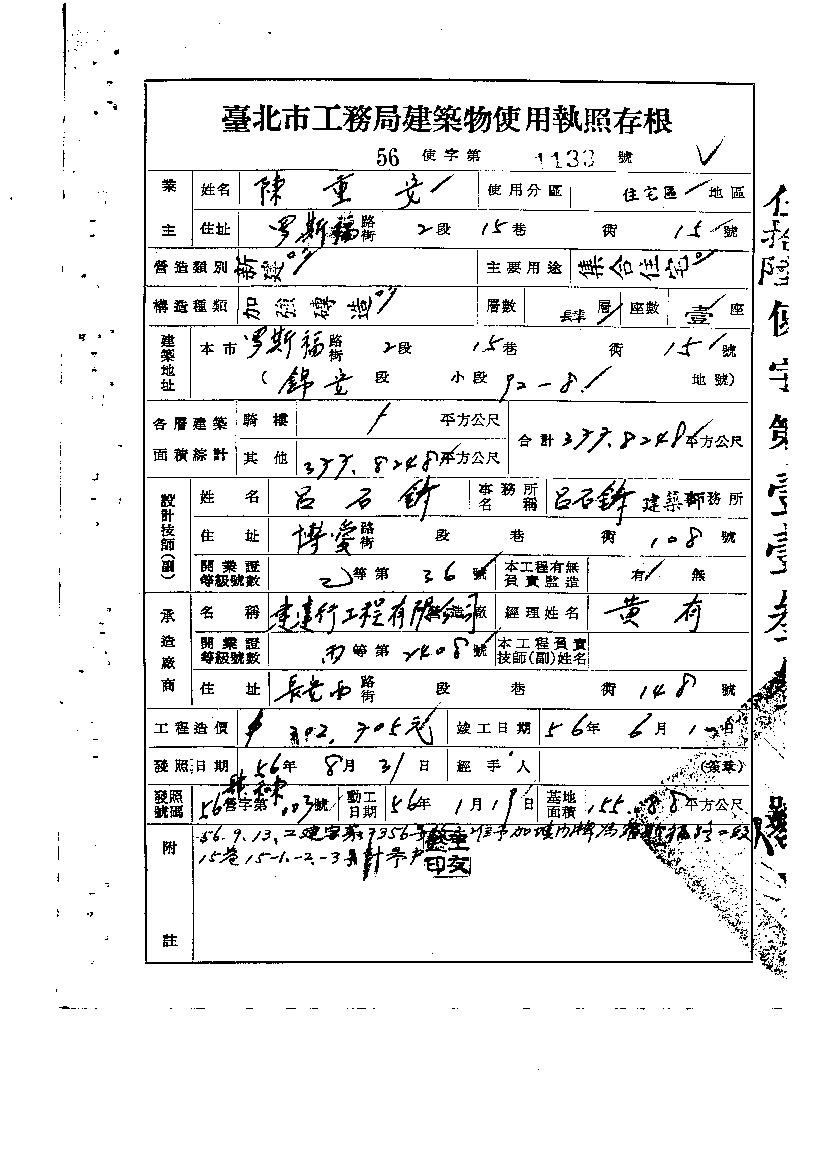 臺北市工務局建築物使用執照存根
56 使字第 1133 號
業主 姓名 陳重安 使用分區 住宅區 地區
住址 罗斯福 路街 2段 15巷 衖 15號
營造類別 新建 主要用途 集合住宅
構造種類 加強磚造 層數 層 座數 壹座
建築地址 本市 罗斯福 路街 2段 15巷 衖 15號
(錦安段 小段 92-8 地號)
各層建築面積綜計 騎樓 / 平方公尺 合計 377.8248平方公尺
其他 377.8248平方公尺
設計技師(副) 姓名 呂石 事務所名稱 呂石 建築師事務所
住址 博愛 路街 段 巷 衖 108號
開業證等級號數 乙等第 36號 本工程有無負責監造 有 無
承造廠商 名稱 建達行工程有限公司 經理姓名 黃有
開業證等級號數 丙等第 2408號 本工程負責技師(副)姓名
住址 長安西 路街 段 巷 衖 148號
工程造價 302,305元 竣工日期 56年6月1日
發照日期 56年8月31日 經手人 (簽章)
發照號碼 56營字第 003號 動工日期 56年1月19日 基地面積 155.88平方公尺
附註 56.9.13.
15巷15-1.-2.-3